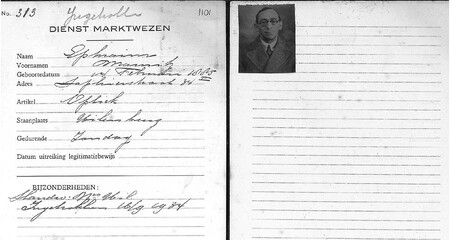 No. 313 1101
DIENST MARKTWEZEN
Naam Ephraim
Voornamen
Geboortedatum Februari
Adres Saphierstraat 84
Artikel Optiek
Staanplaats Uilenburg
Gedurende Zondag
Datum uitreiking legitimatiebewijs
BIJZONDERHEDEN:
Ingetrokken